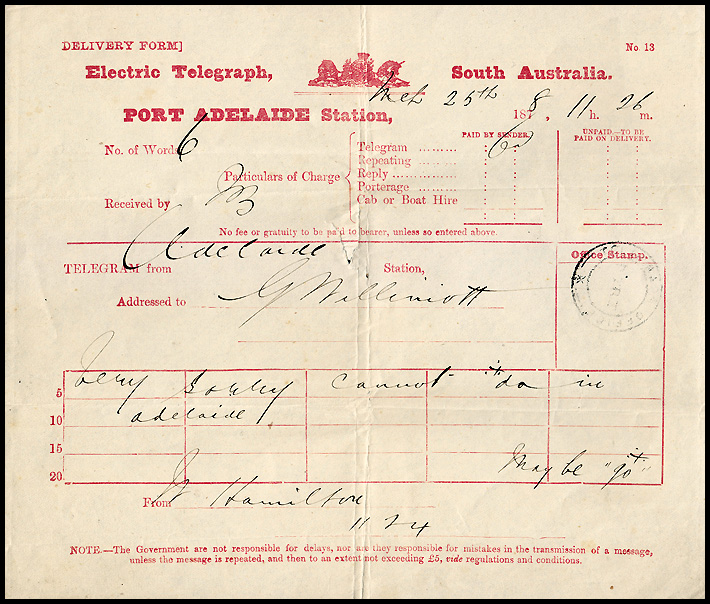 DELIVERY FORM]
No. 13
Electric Telegraph, South Australia.
PORT ADELAIDE Station, Mch 25th 1878, 11 h. 26 m.
No. of Words 6
Particulars of Charge
PAID BY SENDER.
UNPAID.—TO BE PAID ON DELIVERY.
Telegram ......... 6d
Repeating .........
Reply .........
Porterage .........
Cab or Boat Hire
Received by
No fee or gratuity to be paid to bearer, unless so entered above.
TELEGRAM from Adelaide Station,
Office Stamp.
Addressed to G Willimott
5 Very sorry cannot +do in
10 adelaide
15
20 May be "go+"
From W Hamilton
11 24
NOTE.—The Government are not responsible for delays, nor are they responsible for mistakes in the transmission of a message,
unless the message is repeated, and then to an extent not exceeding £5, vide regulations and conditions.